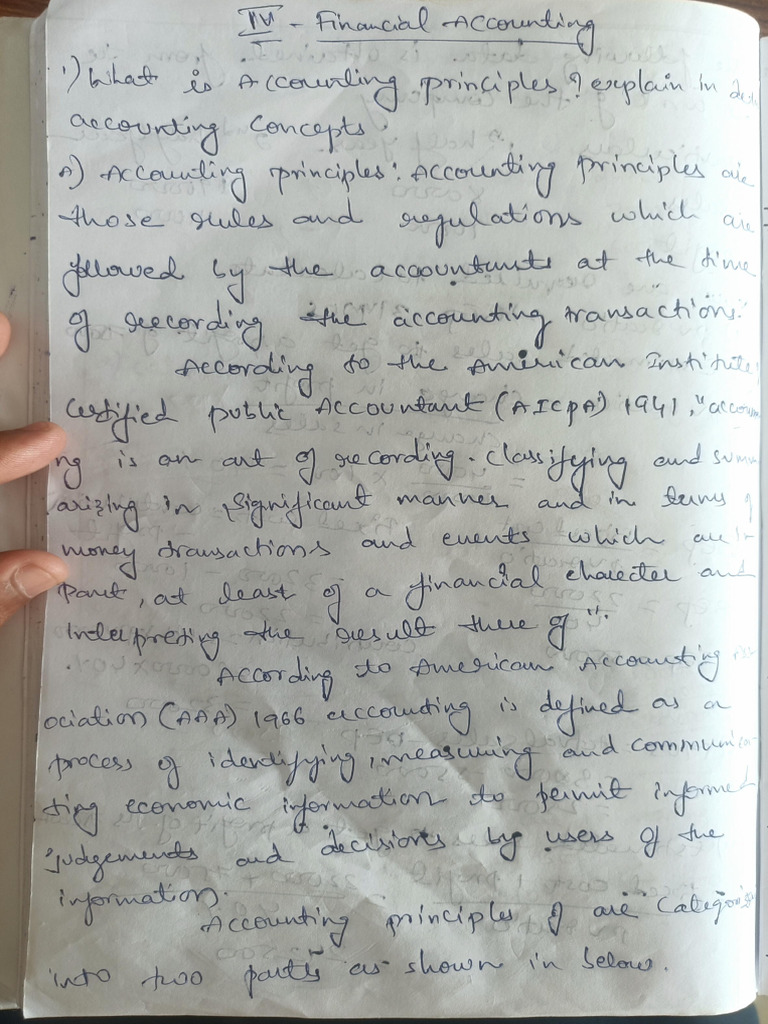 IV - Financial Accounting
1) What is Accounting principles? explain in
accounting concepts.
A) Accounting principles: Accounting principles are
those rules and regulations which are
followed by the accountants at the time
of recording the accounting transactions."
According to the American Institute
Certified public Accountant (AICPA) 1941, "accoun
ng is an art of recording. classifying and summ
arizing in significant manner and in terms of
money transactions and events which are in
part, at least of a financial charecter and
Interpreting the result there of".
According to American Accounting Ass
ociation (AAA) 1966 accounting is defined as a
process of identifying, measuring and communica
ting economic information to permit informed
judgements and decisions by users of the
information.
Accounting principles of are Categoriz
into two parts as shown in below.